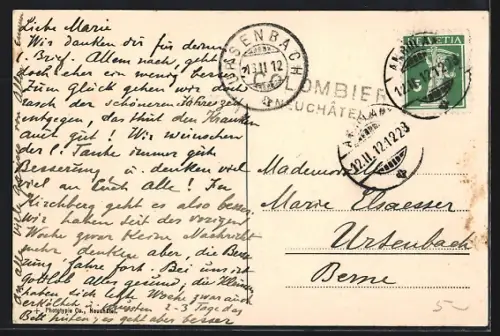 Liebe Marie
Wir danken dir für deinen
l. Brief. Allem nach, geht es
doch eher ein wenig besser.
Zum Glück gehen wir doch
rasch der schöneren Jahreszeit
entgegen, das thut den Kranken
auch gut! Wir wünschen
der l. Tante immer gute
Besserung u. denken viel
viel an Euch Alle! In
Kirchberg geht es also besser,
Wir haben seit der vorigen
Woche zwar keine Nachricht
mehr, denken aber, die Besse-
rung fahre fort. Bei uns ist
gottlob Alles gesund, die Kleinen
haben sich letzte Woche zwar
erkältet u. mussten 2-3 Tage das
Bett hüten; es geht aber besser
Phototypie Co., Neuchâtel
URSENBACH
13.II.12
COLOMBIER
NEUCHÂTEL
HELVETIA
12.II.12.12
12.II.12.12
Mademoiselle
Marie Elsaesser
Urtenbach
Berne
5-